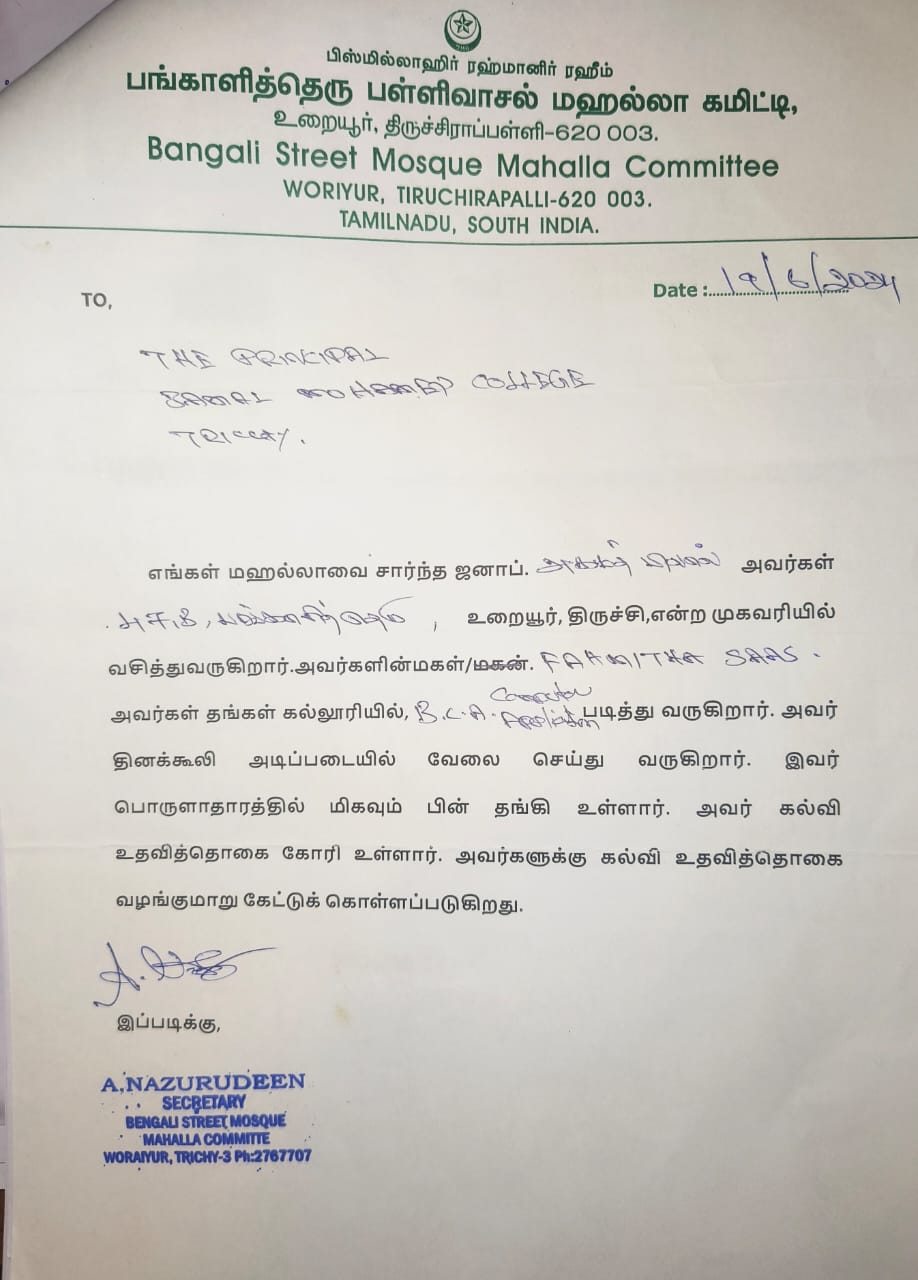 பிஸ்மில்லாஹிர் ரஹ்மானிர் ரஹீம்
பங்காளித்தெரு பள்ளிவாசல் மஹல்லா கமிட்டி,
உறையூர், திருச்சிராப்பள்ளி-620 003.
Bangali Street Mosque Mahalla Committee
WORIYUR, TIRUCHIRAPALLI-620 003.
TAMILNADU, SOUTH INDIA.
Date : 19/6/2024
TO,
THE PRINCIPAL
JAMAL MOHAMED COLLEGE
TRICHY.
எங்கள் மஹல்லாவை சார்ந்த ஜனாப். அவர்கள்
, உறையூர், திருச்சி,என்ற முகவரியில்
வசித்துவருகிறார்.அவர்களின்மகள்/மகன். FAHMITHA SAAS.
அவர்கள் தங்கள் கல்லூரியில், B.C.A. Computer Application படித்து வருகிறார். அவர்
தினக்கூலி அடிப்படையில் வேலை செய்து வருகிறார். இவர்
பொருளாதாரத்தில் மிகவும் பின் தங்கி உள்ளார். அவர் கல்வி
உதவித்தொகை கோரி உள்ளார். அவர்களுக்கு கல்வி உதவித்தொகை
வழங்குமாறு கேட்டுக் கொள்ளப்படுகிறது.
இப்படிக்கு,
A.NAZURUDEEN
SECRETARY
BENGALI STREET MOSQUE
MAHALLA COMMITTE
WORAIYUR, TRICHY-3 Ph:2767707